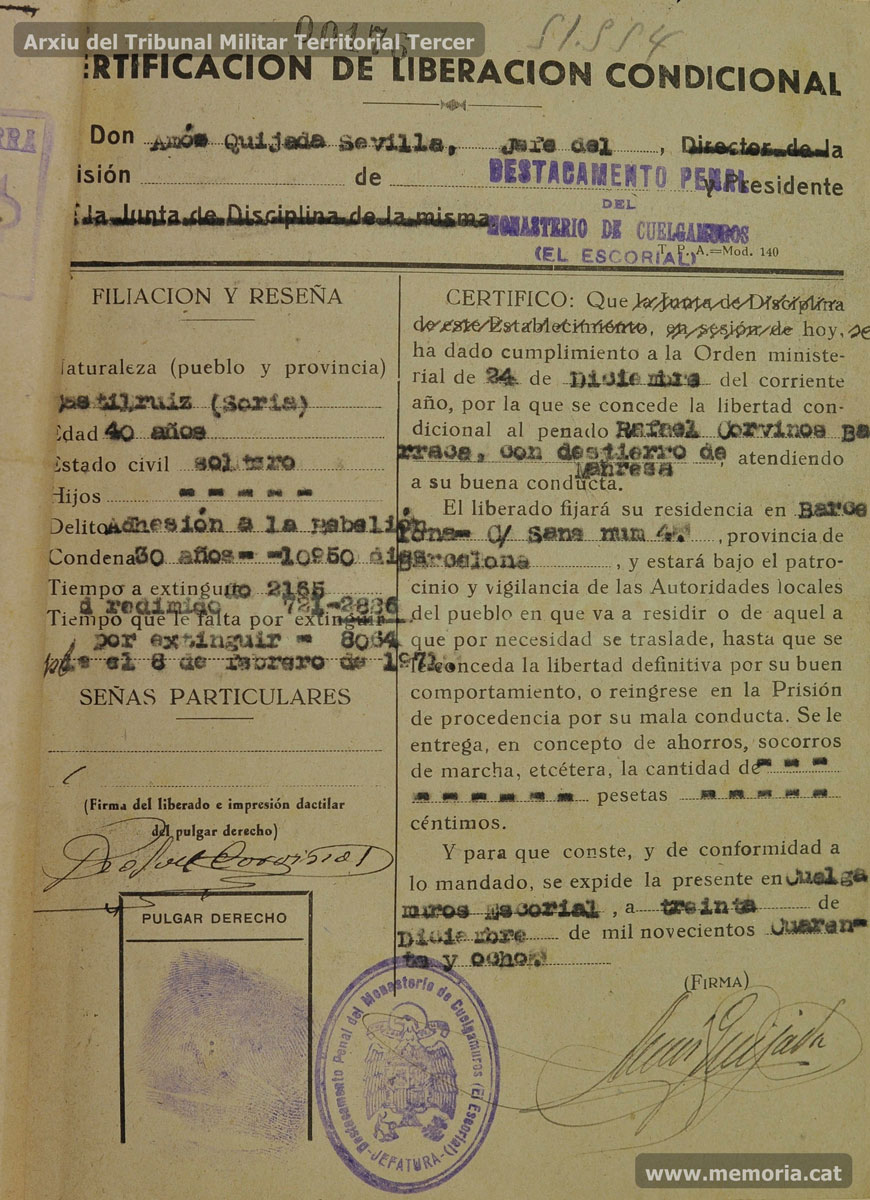 00175
51.554
Arxiu del Tribunal Militar Territorial Tercer
ERTIFICACION DE LIBERACION CONDICIONAL
Don Amós Quijada Sevilla, Jefe del, Director de la
isión de DESTACAMENTO PENAL y Presidente
DEL
la Junta de Disciplina de la misma MONASTERIO DE CUELGAMUROS
(EL ESCORIAL) T. P. A.=Mod. 140
FILIACION Y RESEÑA
aturaleza (pueblo y provincia)
(Soria)
Edad 40 años
Estado civil soltero
Hijos - - - - -
Delito Adhesión a la Rebelión
Condena 30 años= =10950
Tiempo a extinguido 2165
d redimido 721-2886
Tiempo que le falta por extinguir
por extinguir = 8064
el 8 de febrero de 1971
SEÑAS PARTICULARES
(Firma del liberado e impresión dactilar
del pulgar derecho)
PULGAR DERECHO
CERTIFICO: Que la Junta de Disciplina
de este Establecimiento, en sesión de hoy, se
ha dado cumplimiento a la Orden ministe-
rial de 24 de Diciembre del corriente
año, por la que se concede la libertad con-
dicional al penado Rafael Corvinos Ba
rraca, con destierro de
Manresa, atendiendo
a su buena conducta.
El liberado fijará su residencia en Barce
lona- C/ Sans num, provincia de
Barcelona, y estará bajo el patro-
cinio y vigilancia de las Autoridades locales
del pueblo en que va a residir o de aquel a
que por necesidad se traslade, hasta que se
le conceda la libertad definitiva por su buen
comportamiento, o reingrese en la Prisión
de procedencia por su mala conducta. Se le
entrega, en concepto de ahorros, socorros
de marcha, etcétera, la cantidad de - - -
- - - - - - pesetas - - - - -
céntimos.
Y para que conste, y de conformidad a
lo mandado, se expide la presente en Cuelga
muros Escorial, a treinta de
Diciembre de mil novecientos Cuaren-
ta y ocho.
(FIRMA)
Destacamento Penal del Monasterio de Cuelgamuros (El Escorial)
-JEFATURA-
www.memoria.cat